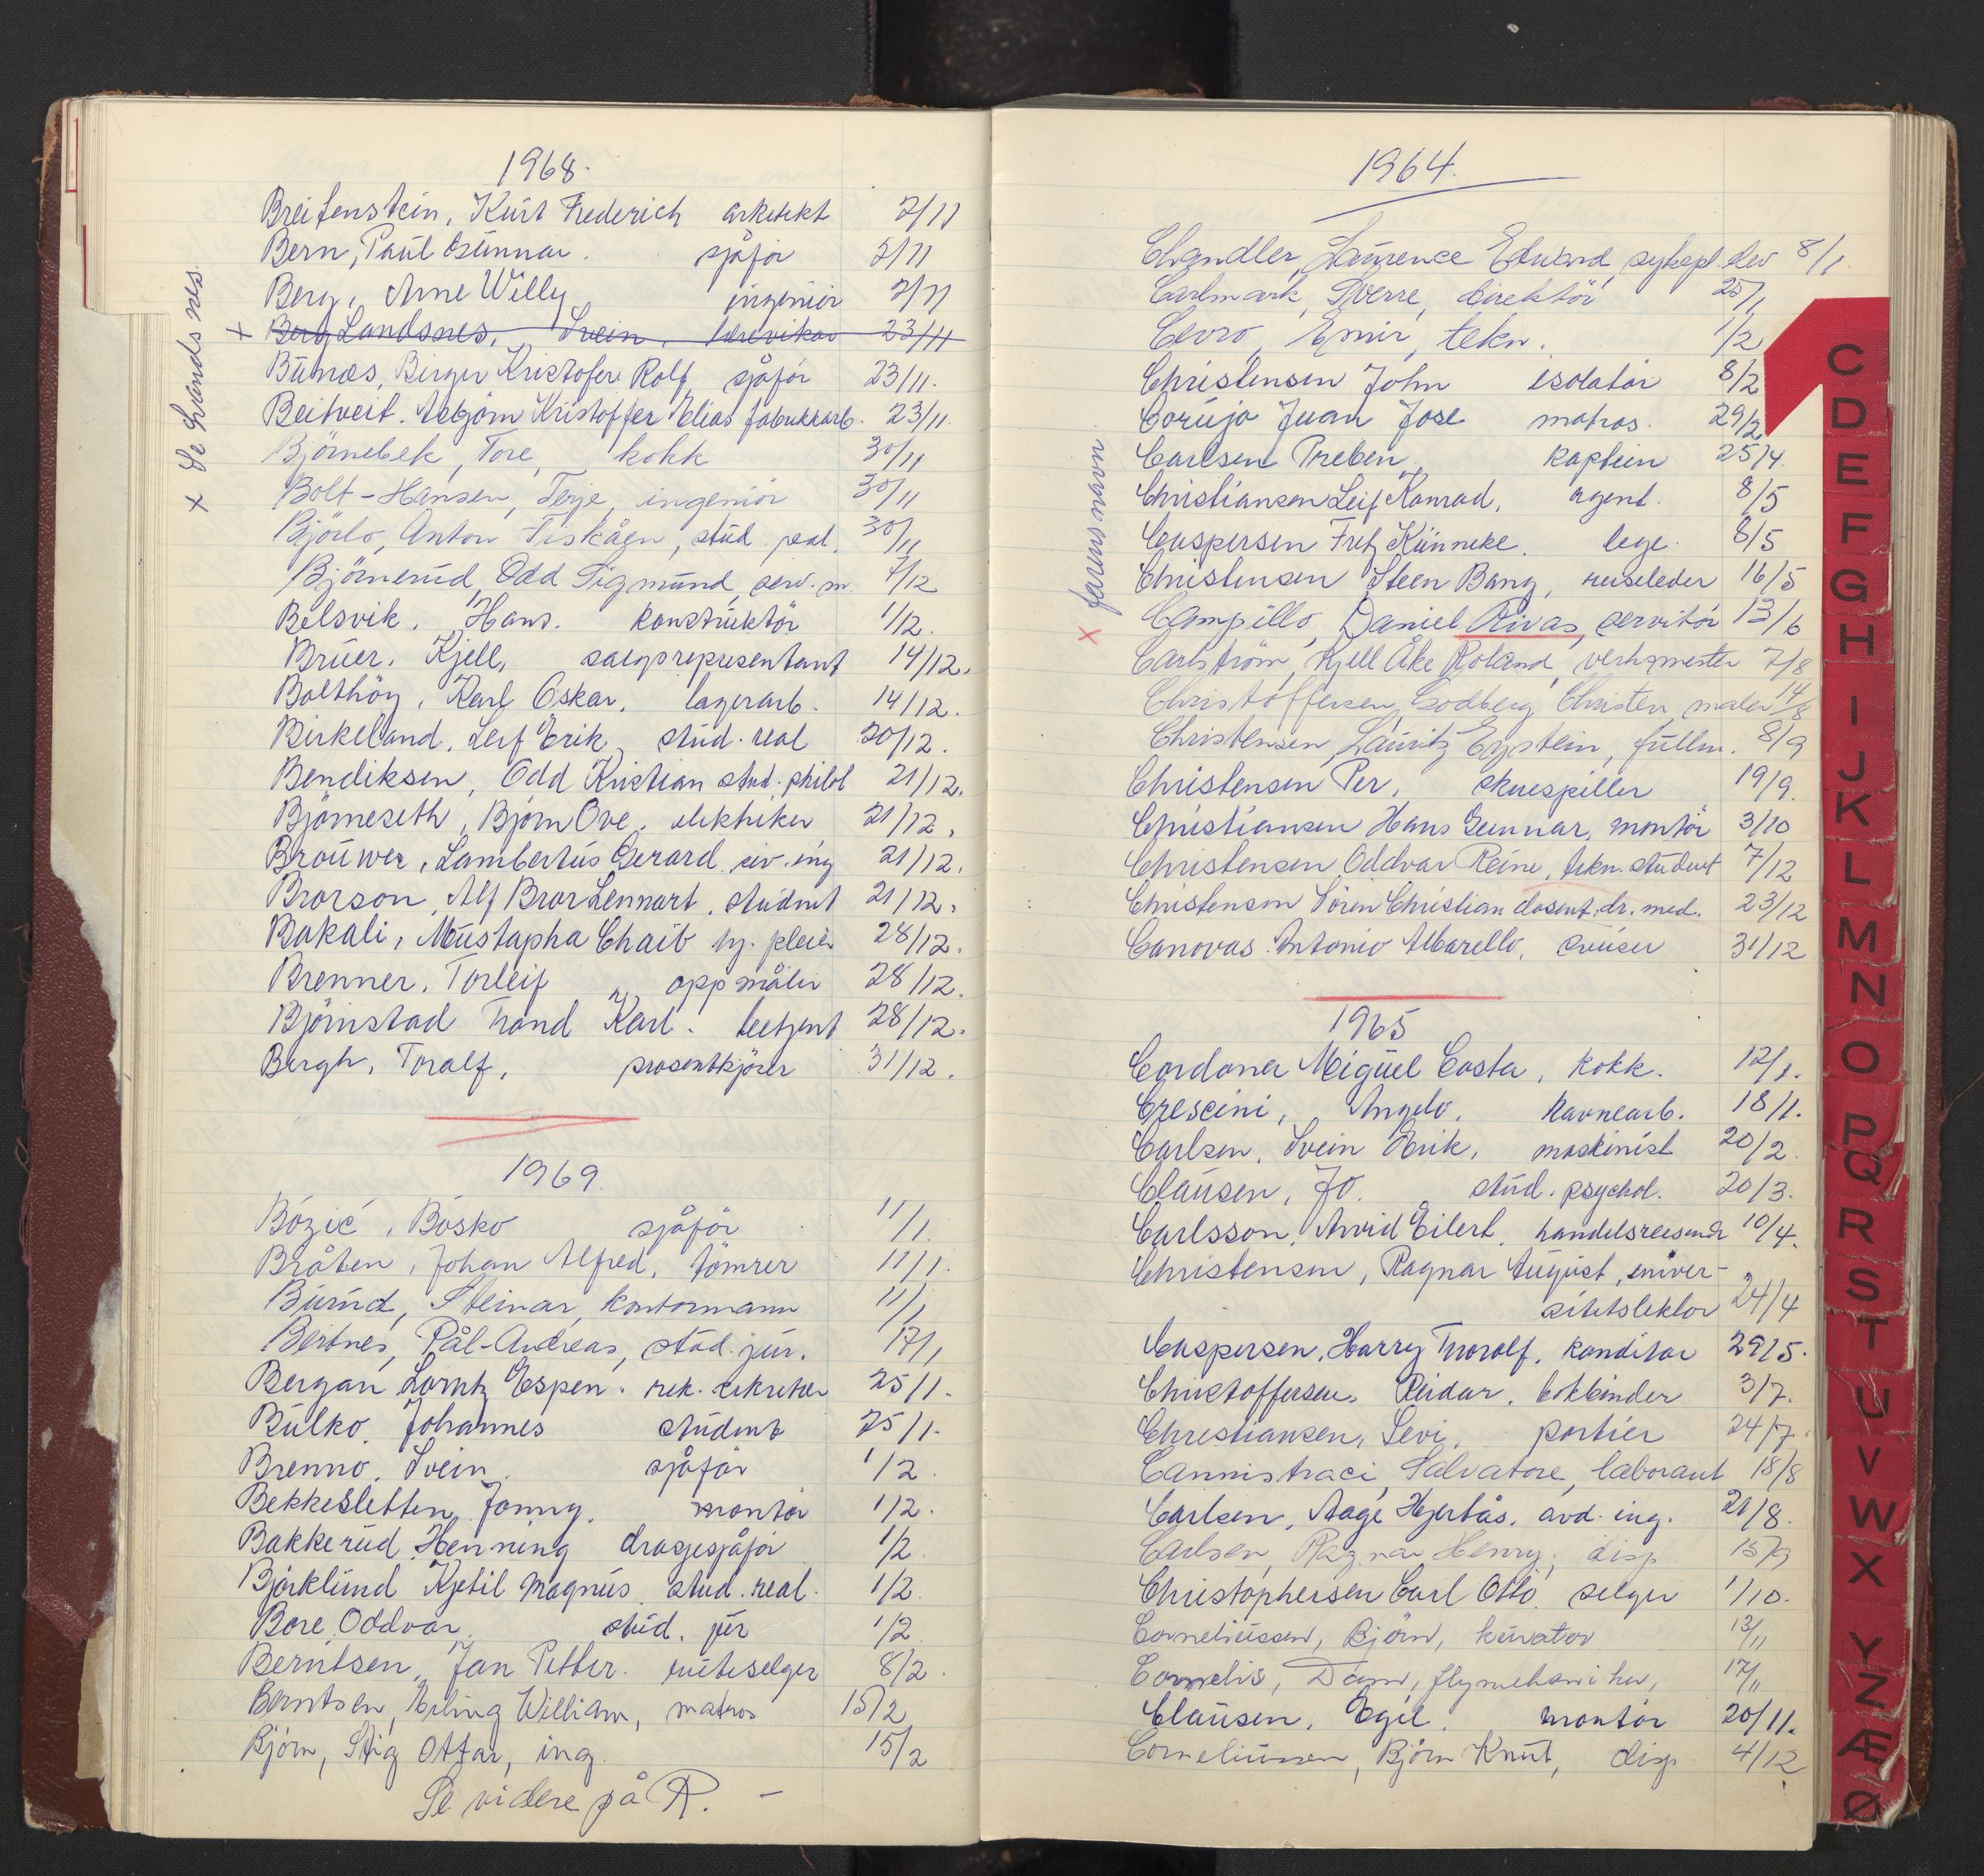 1968.
Breifenstein, Kurt Frederich arkitekt 2/11
Bern, Paul Gunnar. sjåför 2/11
Berg, Arne Willy ingeniör 2/11
+ Berg Landsnes, Svein, 23/11
Bünæs, Birger Kristofer Rolf, sjåför 23/11.
Beitveit. Asbjörn Kristoffer Elias fabrikkarb. 23/11
Björnebek, Tore, kokk 30/11
Bolt-Hansen, Terje, ingeniör 30/11
Björlo, Anton Fiskåen, stud. real. 30/11
Björnerud, Odd Sigmund, serv. m. 7/12
Belsvik. Hans. Konstruktör 1/12.
Bruer. Kjell, salgsrepresentant 14/12.
Bolthöy, Karl Oskar. lagerarb. 14/12.
Birkeland, Leif Erik, stud. real 20/12.
Bendiksen, Odd Kristian stud. philol 21/12.
Björneseth, Björn Ove. elektriker 21/12.
Brouwer, Lambertus Gerard. siv. ing 21/12.
Brorson, Alf Bror Lennart. student 21/12.
Bakali, Mustapha Chaib hj. pleier 28/12.
Brenner. Torleif oppmåler 28/12.
Björnstad Trond Karl. betjent 28/12.
Bergh, Toralf, prosentkjörer 31/12.
+ Se Svands nes.
1969.
Bózić, Bosko sjåför 11/1.
Bråten, Johan Alfred, tömrer 11/1.
Burud, Steinar, kontormann 11/1
Bertnes, Pål-Andreas, stud. jur. 17/1
Bergan Lorntz Espen. rek. sekretær 25/1.
Bulko. Johannes student 25/1.
Brenno. Svein. sjåför 1/2.
Bekkesletten, Jonny. montör 1/2.
Bakkerud, Henning drosjesjåför 1/2.
Björklund Kjetil Magnus. stud. real. 1/2.
Bore, Oddvar. stud. jur 1/2
Berntsen, Jan Petter. ruteselger 8/2.
Berntsen, Erling William, matros 15/2
Björn, Stig Ottar, ing. 15/2
Se videre på R. –
1964.
Chandler, Laurence Edward, sykepl. elev 8/1
Carlmark, Sverre, direktör 25/1
Cevro, Emir, tekn. 1/2
Christensen John isolatör 8/2
Corujo Juan Jose matros. 29/2
Carlsen Preben, kaptein 25/4.
Christiansen Leif Konrad, agent. 8/5
Caspersen Fritz Künneke. lege. 8/5
Christensen Steen Bang, reiseleder 16/5
x Campillo, Daniel Rivas, servitör 13/6
Carlström, Kjell Åke Roland, verksmester 7/8
Christoffersen, Godberg Christen, maler 14/8
Christensen, Lauritz Eystein, fullm. 8/9
Christensen Per, skuespiller 19/9.
Christiansen Hans Gunnar, montör 3/10
Christensen Oddvar Reine, tekn. student 7/12
Christensen Sören Christian dosent, dr. med. 23/12
Canovas. Antonio Albarello, 31/12
farens navn.
1965
Cardona Miguel Costa, kokk. 12/1.
Crescini, Angelo. havnearb. 18/1.
Carlsen, Svein Erik, maskinist 20/2.
Clausen, Jo. stud. psychol. 20/3.
Carlsson, Arvid Eilert. handelsreisende 10/4.
Christensen, Ragnar August, univer-
sitetslektor 24/4
Caspersen, Harry Thoralf. konditor 29/5.
Christoffersen, Reidar. bokbinder 3/7.
Christiansen, Levi, portier 24/7.
Cannistraci, Salvatore, laborant 18/8
Carlsen, Aage Hjertås. avd. ing. 21/8.
Carlsen, Ragnar Henry, disp. 15/9
Christophersen Carl Otto. selger 1/10.
Corneliussen, Björn, kurator 13/11
Cornelis, Dam, flymekaniker, 17/11
Clausen, Egil. montör 20/11.
Corneliussen, Björn Knut, disp. 4/12
C
D
E
F
G
H
I
J
K
L
M
N
O
P
Q
R
S
T
U
V
W
X
Y
Z
Æ
Ø